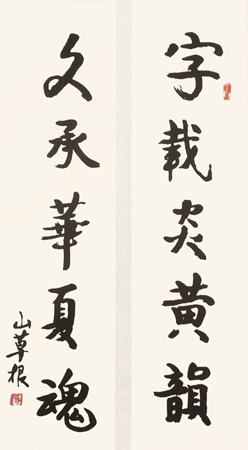 字載炎黄韻
文承華夏魂
山草根